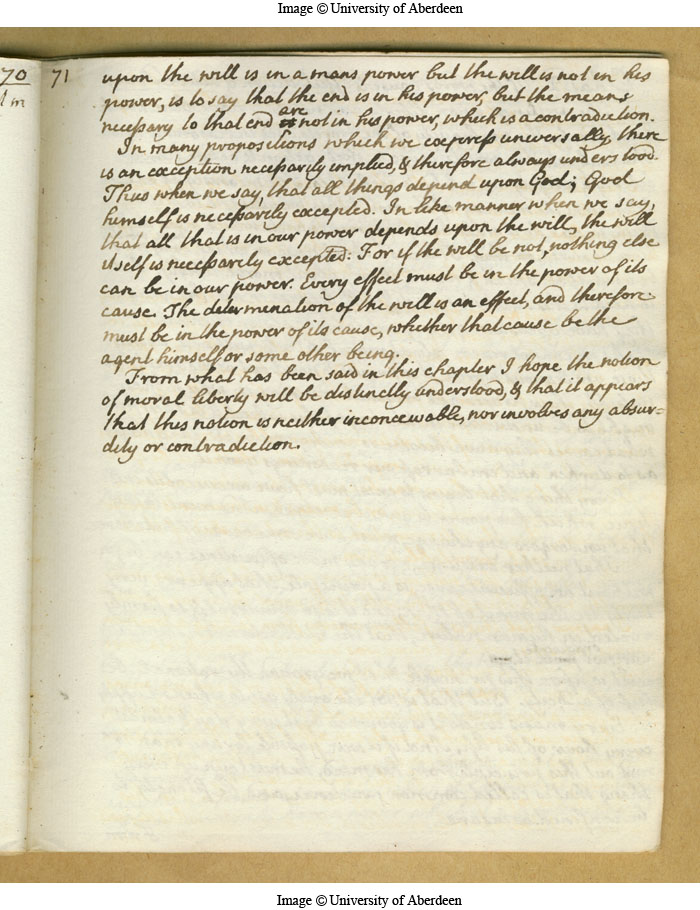 Image © University of Aberdeen
70
71
upon the will is in a mans power but the will is not in his
power, is to say that the end is in his power, but the means
necessary to that end are not in his power, which is a contradiction.
In many propositions which we express universally, there
is an exception necessarily implied, & therefore always understood.
Thus when we say, that all things depend upon God; God
himself is necessarily excepted. In like manner when we say,
that all that is in our power depends upon the will, the will
itself is necessarily excepted: For if the will be not, nothing else
can be in our power. Every effect must be in the power of its
cause. The determination of the will is an effect, and therefore
must be in the power of its cause, whether that cause be the
agent himself or some other being.
From what has been said in this chapter I hope the notion
of moral liberty will be distinctly understood, & that it appears
that this notion is neither inconceivable, nor involves any absur=
dity or contradiction.
Image © University of Aberdeen